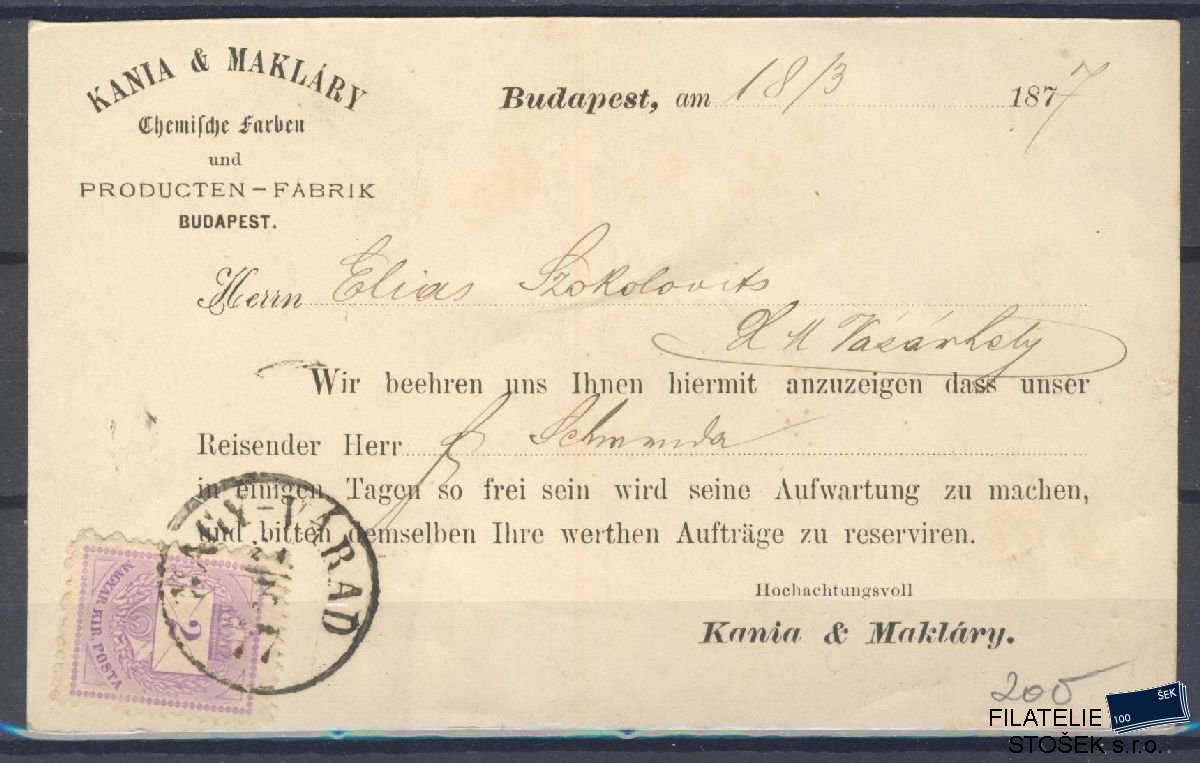 KANIA & MAKLÁRY
Chemische Farben
und
PRODUCTEN-FABRIK
BUDAPEST.
Budapest, am 18/3 1877
Herrn Elias Szokolovits
H M Vásárhely
Wir beehren uns Ihnen hiermit anzuzeigen dass unser
Reisender Herr
in einigen Tagen so frei sein wird seine Aufwartung zu machen,
und bitten demselben Ihre werthen Aufträge zu reserviren.
Hochachtungsvoll
Kania & Makláry.
NAGY-VÁRAD
77
MAGYAR KIR. POSTA
2
200
100 ŠEK
FILATELIE
STOŠEK s.r.o.